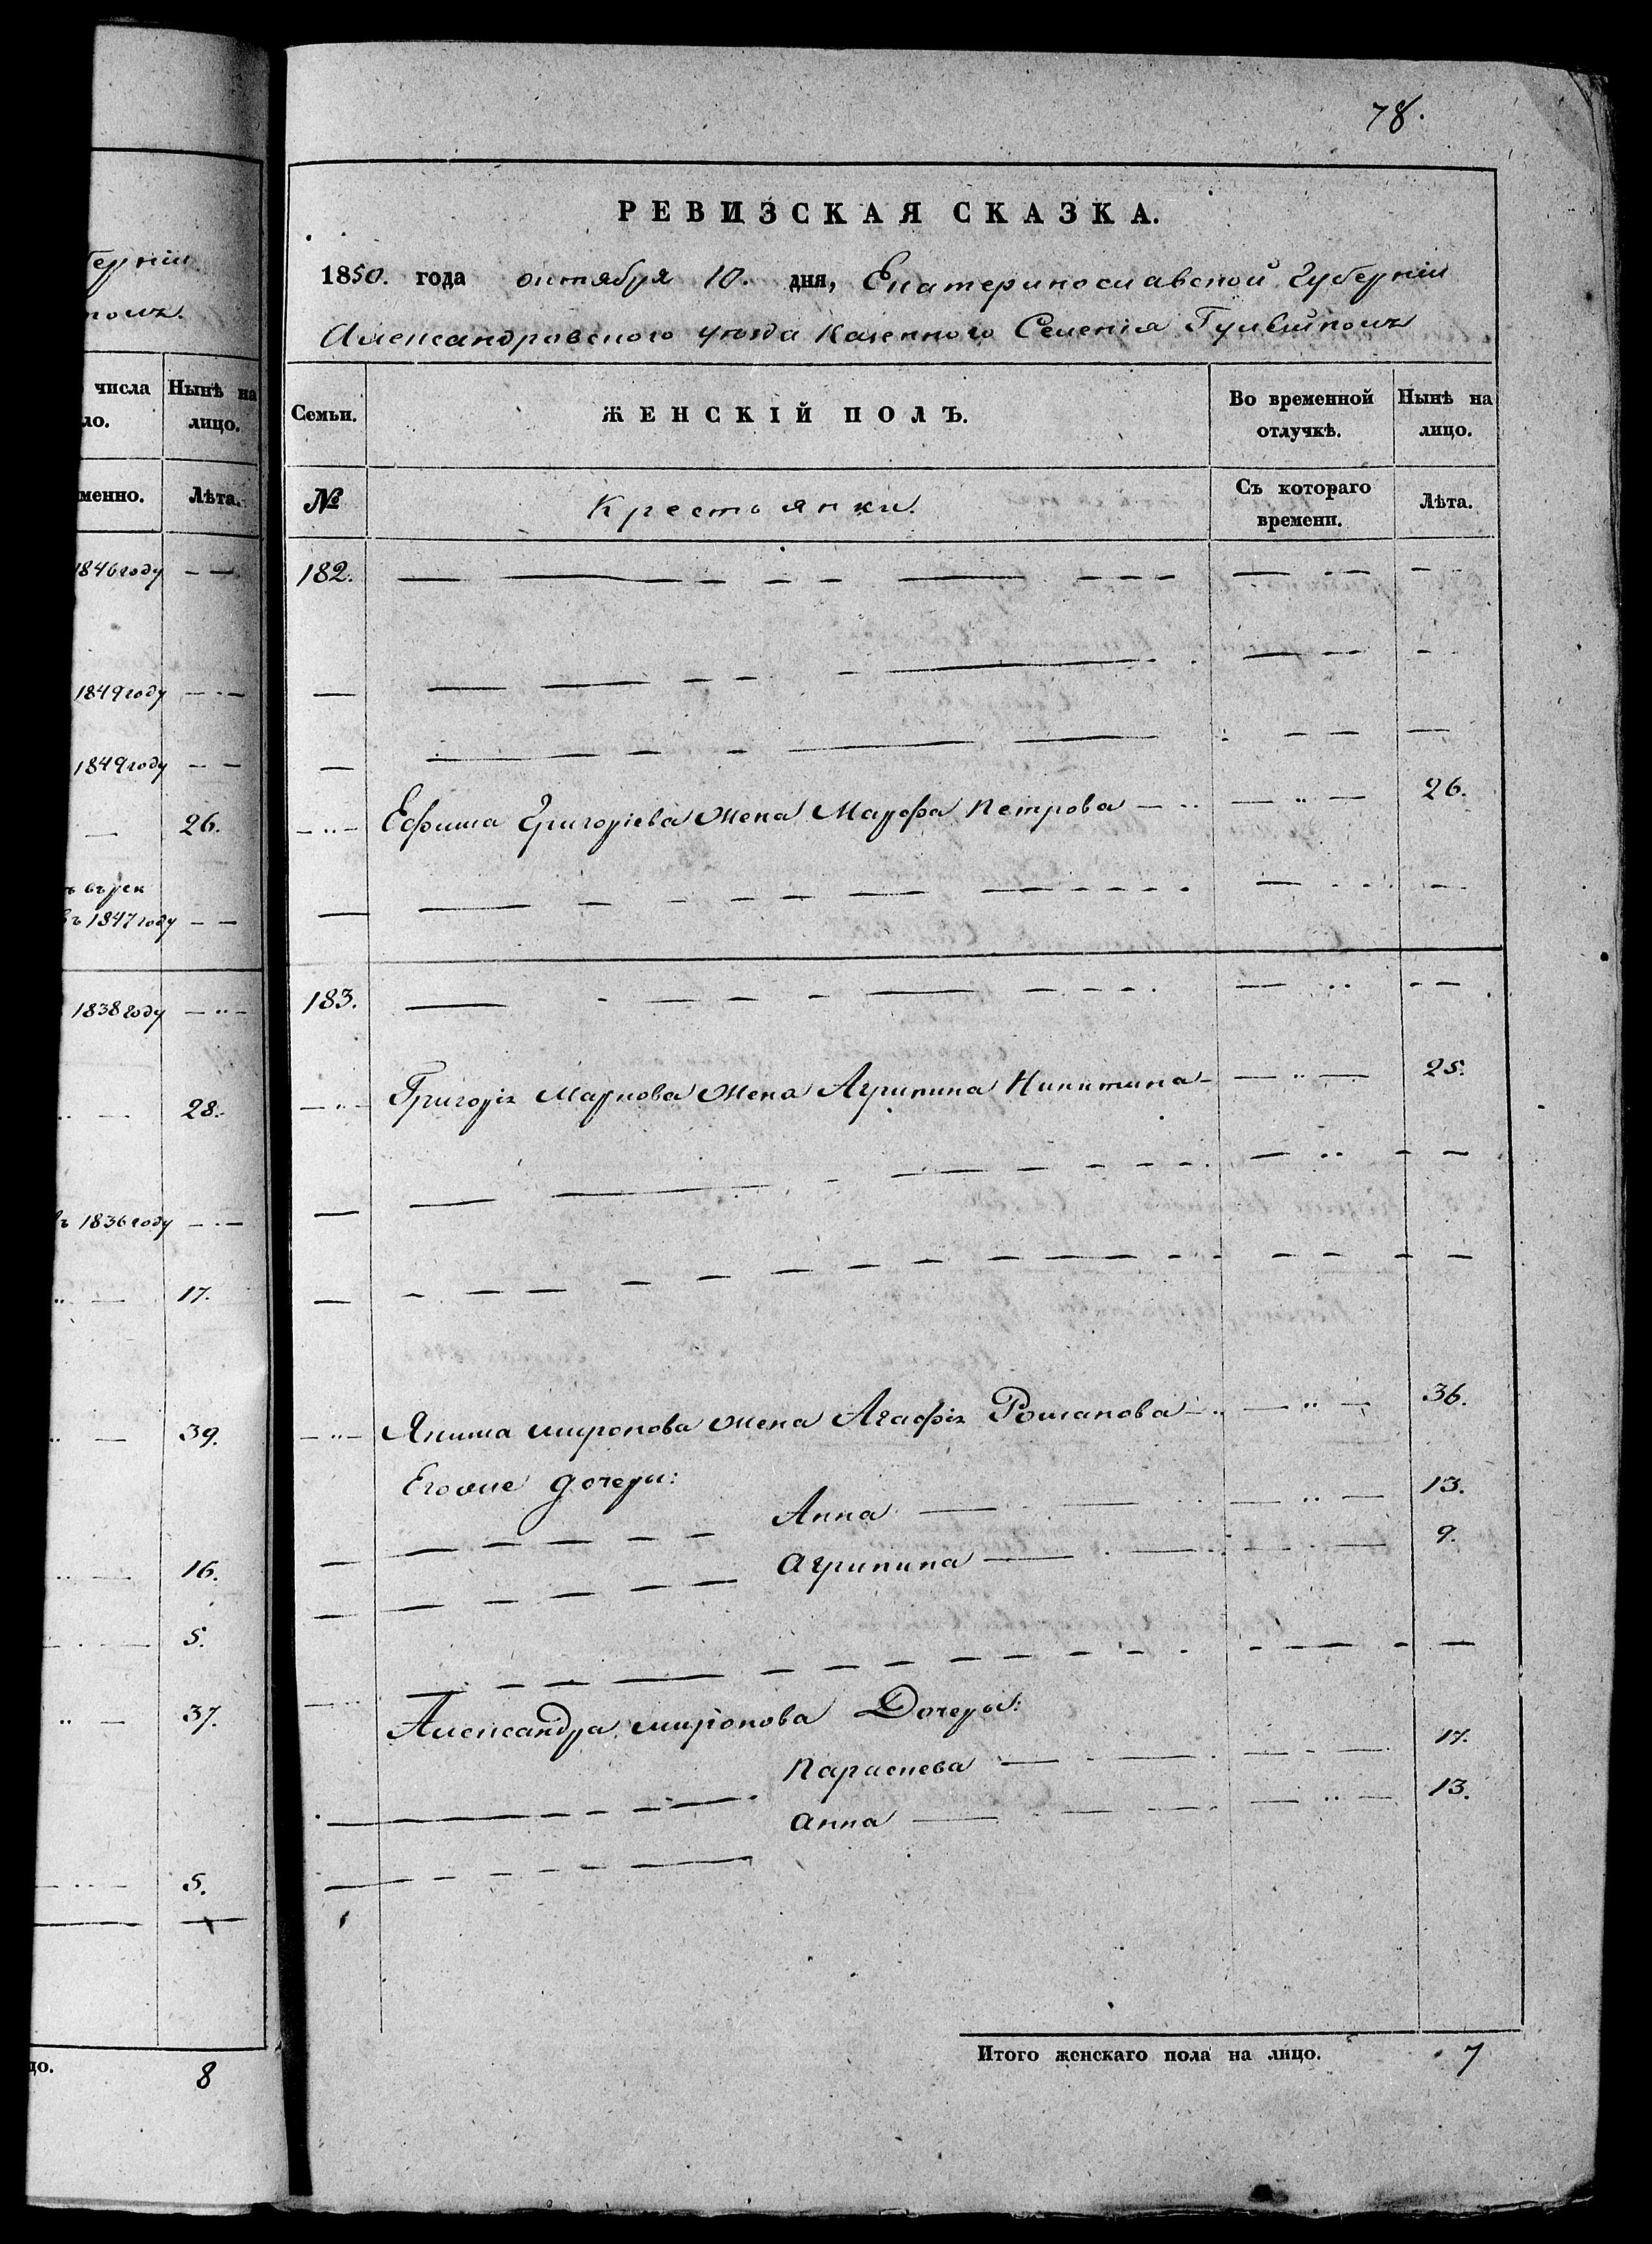 78.
РЕВИЗСКАЯ СКАЗКА.
1850. года октября 10. дня, Екатеринославской Губерніи
Александровского уѣзда Казенного Селенія Гуляйполъ
Семьи.
ЖЕНСКІЙ ПОЛЪ.
Во временной отлучкѣ.
Нынѣ на лицо.
№
Крестьянки.
Съ котораго времени.
Лѣта.
182.
Ефима Григорьева жена Марфа Петрова 26.
183.
Григорія Маркова жена Агрипина Никитина 25.
Якима Миронова жена Агафія Романова 36.
Еговые дочери:
Анна 13.
Агрипина 9.
Александра Миронова Дочери:
Параскева 17.
Анна 13.
Итого женскаго пола на лицо. 7
губерніи
полъ.
числа
ло.
Нынѣ на лицо.
менно.
Лѣта.
1846 году
1849 году
1849 году
26.
въ рек
въ 1847 году
1838 году
28.
въ 1836 году
17.
39.
16.
5.
37.
5.
цо. 8